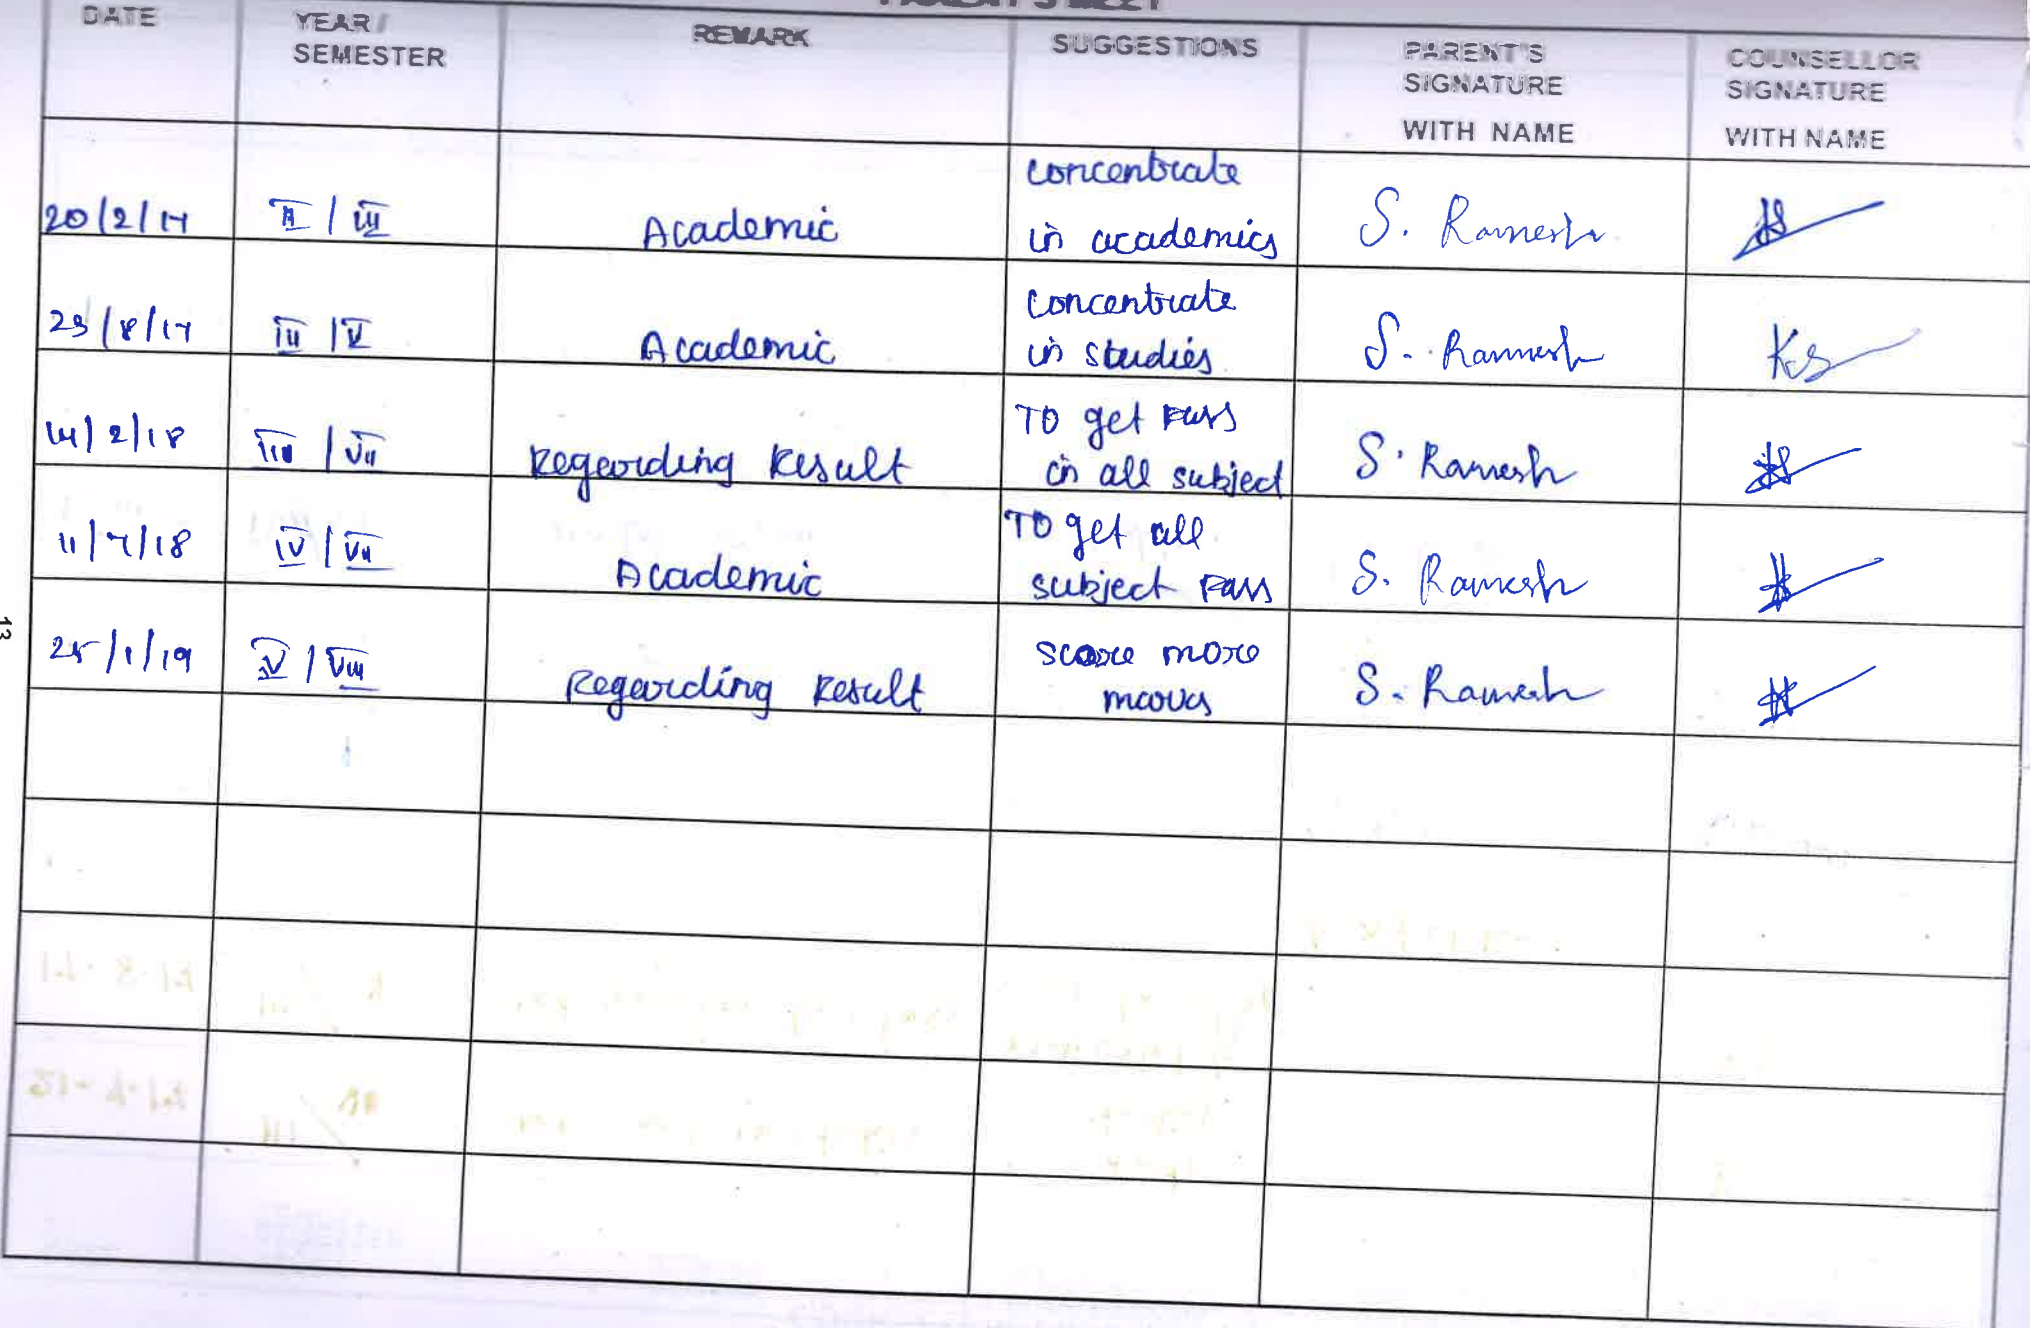 PARENT'S MEET
DATE YEAR/ SEMESTER REMARK SUGGESTIONS PARENT'S SIGNATURE WITH NAME COUNSELLOR SIGNATURE WITH NAME
20/2/17 II / III Academic concentrate
in academics S. Ramesh
23/8/17 III / V Academic concentrate
in studies S. Ramesh KS
14/2/18 III / VII Regarding Result To get pass
in all subject S. Ramesh
11/7/18 IV / VII Academic To get all
subject pass S. Ramesh
25/1/19 IV / VIII Regarding Result score more
S. Ramesh
13